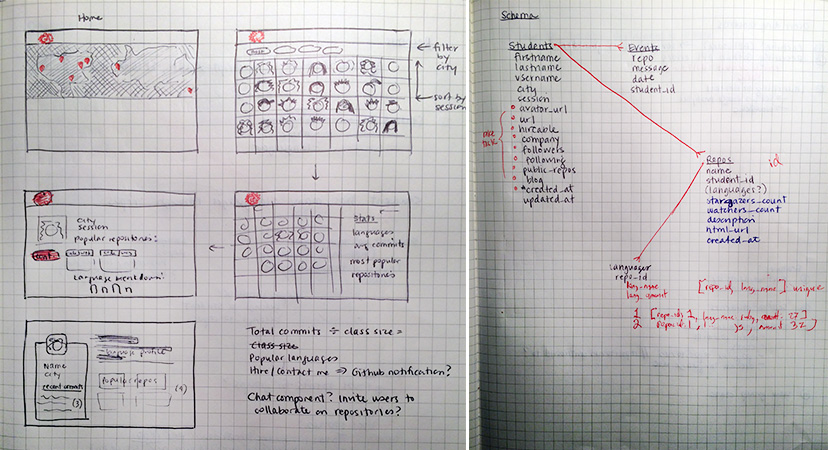 Home
filter
by
city
sort by
session
city
session
popular repositories:
Language breakdown:
Stats
languages
avg commits
most popular
repositories
Name
City
recent commits
(3)
language profile
Popular Repos
(4)
Total commits ÷ class size =
class size
Popular languages
Hire/contact me ⇒ Github notification?
Chat component? Invite users to
collaborate on repositories?
Schema
Students
firstname
lastname
username
city
session
avatar_url
url
hireable
company
followers
following
public_repos
blog
created_at
updated_at
rake
task
Events
repo
message
date
student_id
Repos
id
name
student_id
(languages?)
stargazers_count
watchers_count
description
html_url
created_at
Languages
repo_id
lang_name
lang_amount
[repo_id, lang_name] unique
1 [repo_id, 1, lang_name ruby, amount 27]
2 repo_id, 1, js, amount 32]